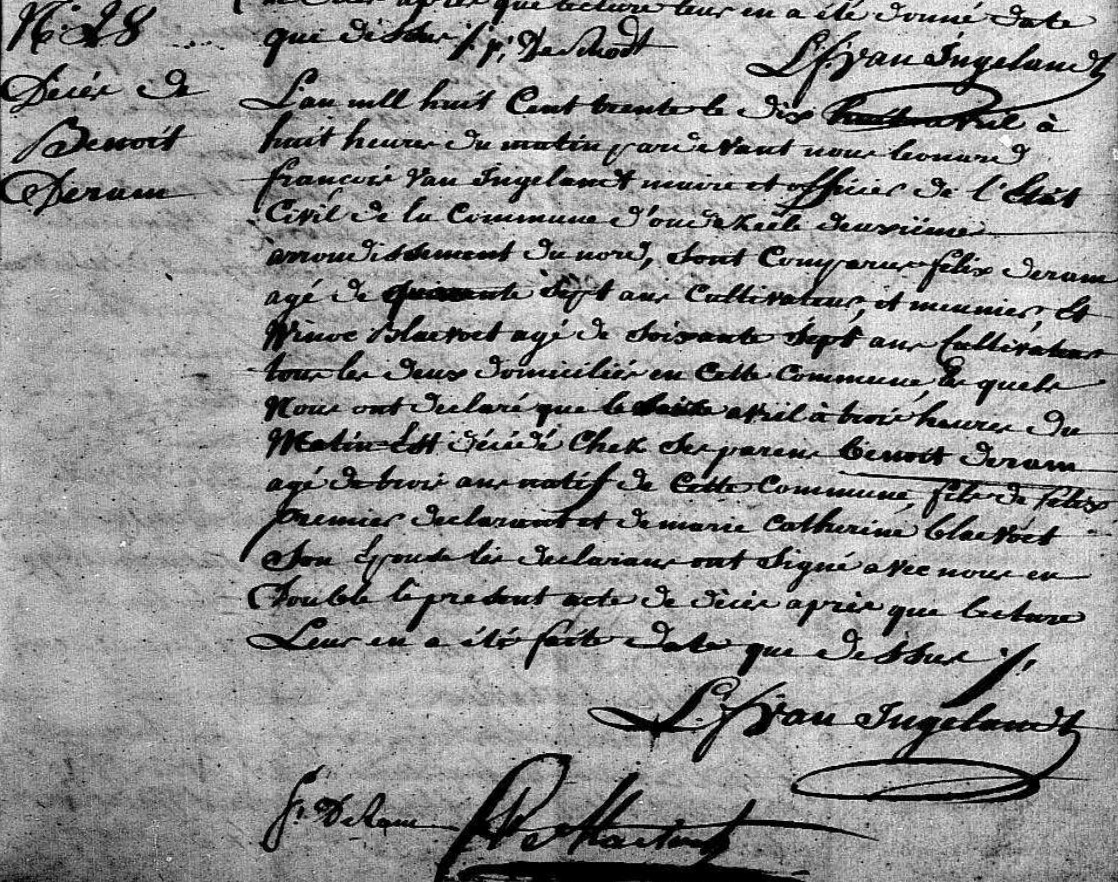 après que lecture leur en a été donné date
N: 28
que dessus
L f van Ingelandt
Décés de
Benoit
Deram
L'an mll huit Cent trente le dix huit avril à
huit heures du matin pardevant nous leonard
francois Van Ingelandt maire et officier de l'Etat
Civil de la Commune d'oudezeele deuxiéme
arrondissement du nord, sont Comparus felix deram
agé de quarante sept ans Cultivateur, et meunier, Et
Winoc Blaevoet agé de soixante sept ans Cultivateur
tous les deux domiciliés en Cette Commune, les quels
Nous ont declaré que le avril à trois heures du
Matin Est décédé Chez Ses parens benoit deram
agé de trois ans natif de Cette Commune, fils de felix
premier declarant et de marie Catherine blaevoet
Son Epouse les declarans ont Signé avec nous en
Double le present acte de décés après que lecture
Leur en a été faite date que dessus /.
L f van Ingelandt
f. DeRam